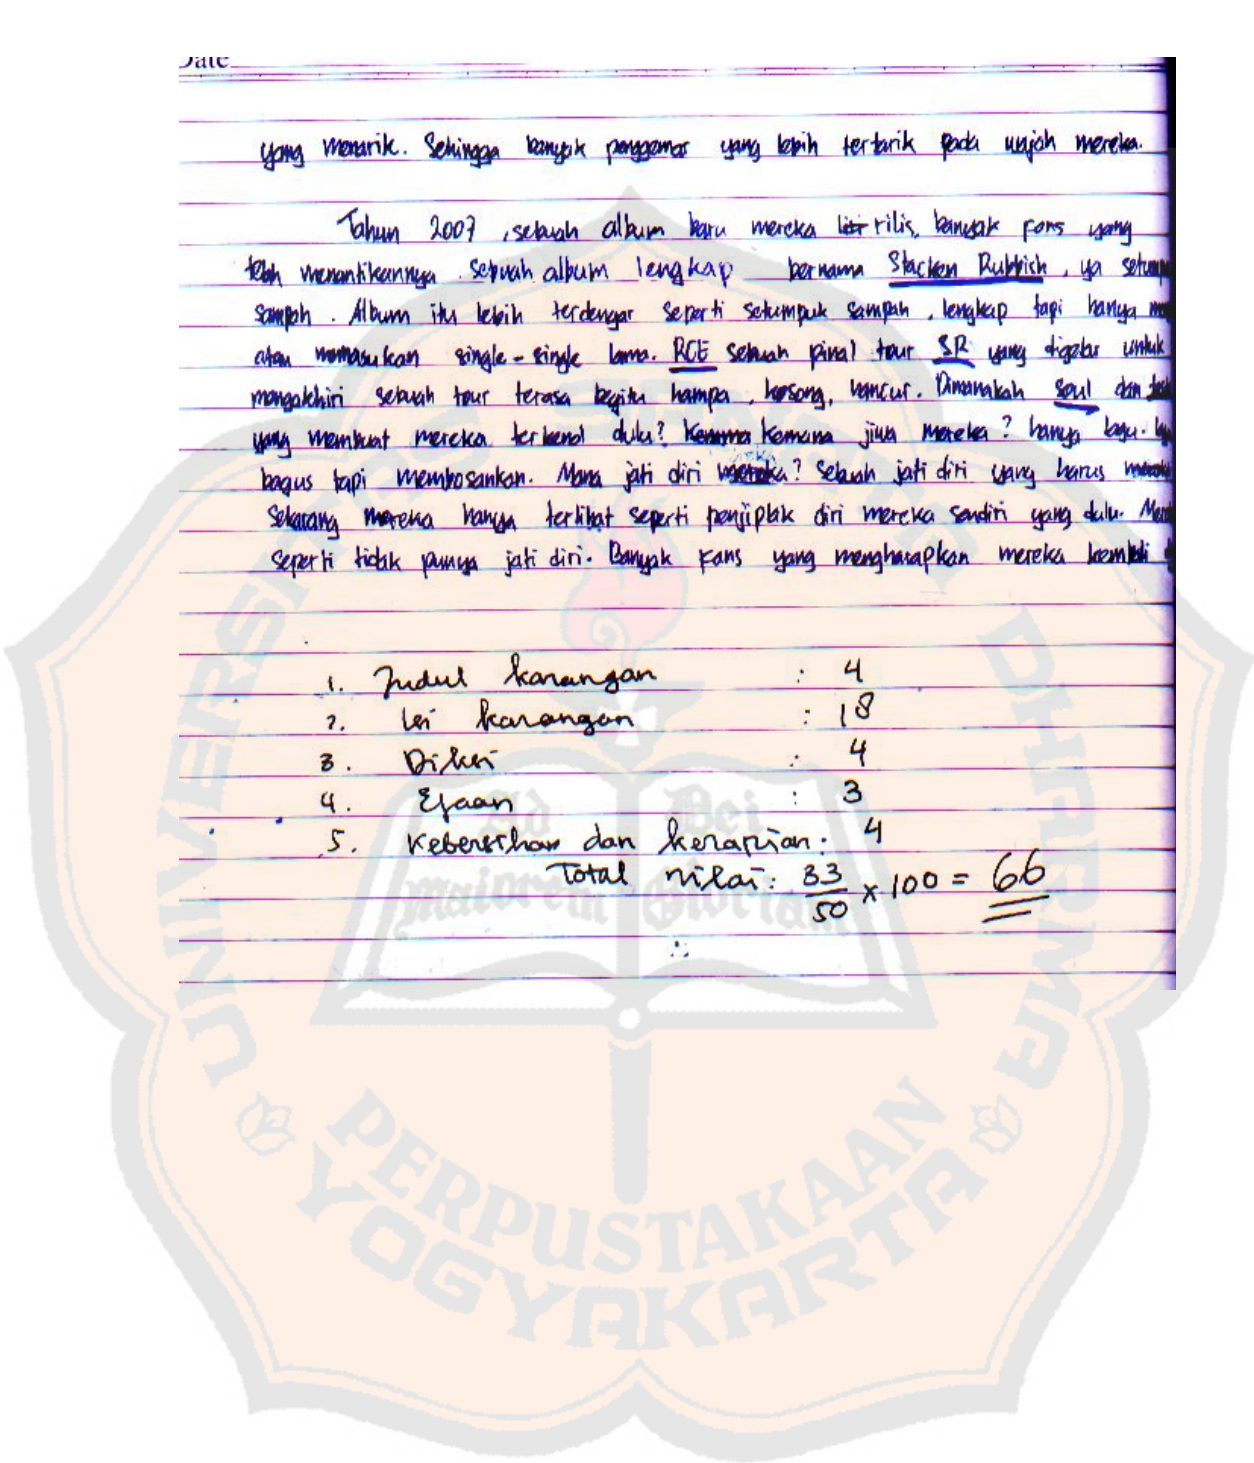 Date
yang menarik. Sehingga banyak penggemar yang lebih tertarik pada wajah mereka.
Tahun 2007, sebuah album baru mereka rilis, banyak fans yang
telah menantikannya. Sebuah album lengkap bernama Stacken Rubbich, ya setump
sampah. Album itu lebih terdengar seperti setumpuk sampah, lengkap tapi hanya
atau memasukan single-single lama. RCE sebuah final tour SR yang digelar untuk
mengakhiri sebuah tour terasa begitu hampa, kosong, hancur. Dimanakah soul dan
yang membuat mereka terkenal dulu? Kemana jiwa mereka? hanya lagu-
bagus tapi membosankan. Mana jati diri mereka? Sebuah jati diri yang harus
Sekarang mereka hanya terlihat seperti penjiplak diri mereka sendiri yang dulu.
seperti tidak punya jati diri. Banyak fans yang mengharapkan mereka kembali
1. Judul karangan : 4
2. Isi karangan : 18
3. Diksi : 4
4. Ejaan : 3
5. Kebersihan dan kerapian : 4
Total nilai : 33/50 x 100 = 66
UNIVERSITAS SANATA DHARMA
Ad Maiorem Dei Gloriam
PERPUSTAKAAN
YOGYAKARTA